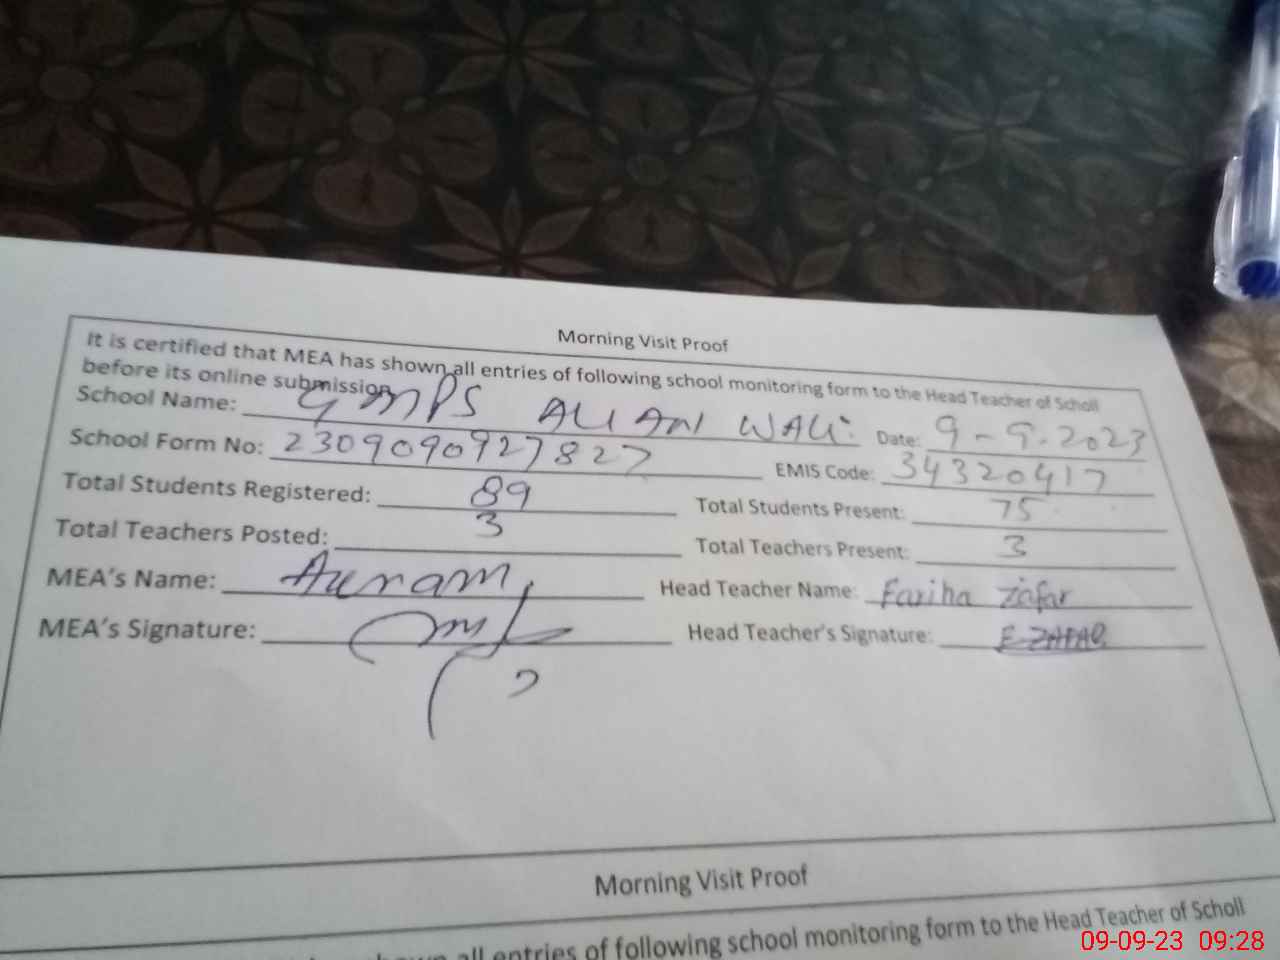 Morning Visit Proof
It is certified that MEA has shown all entries of following school monitoring form to the Head Teacher of Scholl
before its online submission
School Name: GMPS ALI ANI WALI Date: 9-9-2023
School Form No: 2309090927827 EMIS Code: 34320417
Total Students Registered: 89 Total Students Present: 75
Total Teachers Posted: 3 Total Teachers Present: 3
MEA's Name: Head Teacher Name: Fariha Zafar
MEA's Signature: Head Teacher's Signature: F-ZAFAR
Morning Visit Proof
all entries of following school monitoring form to the Head Teacher of Scholl
09-09-23 09:28